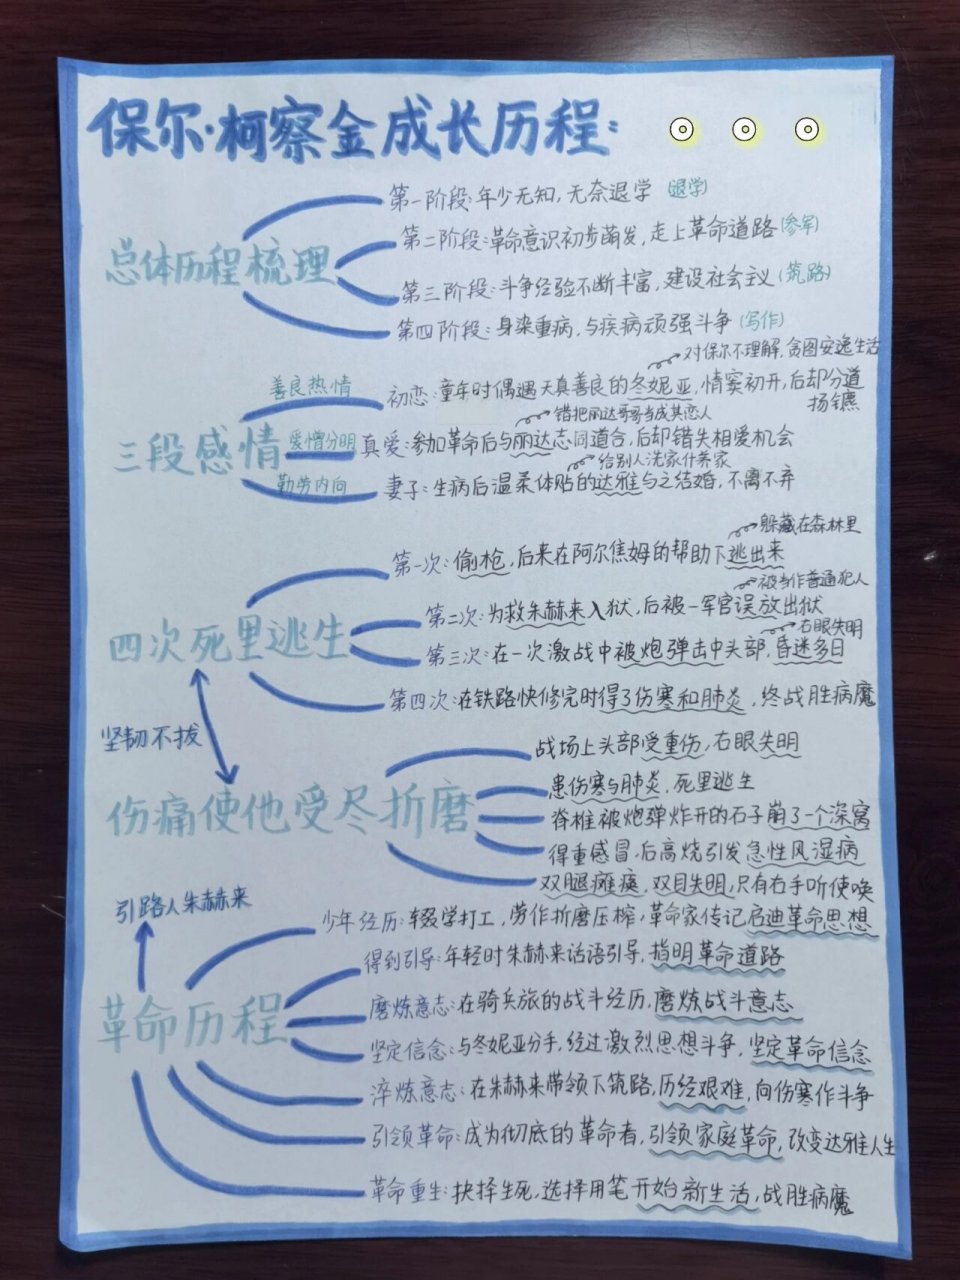 保尔·柯察金成长历程:
总体历程梳理
第一阶段:年少无知,无奈退学 (退学)
第二阶段:革命意识初步萌发,走上革命道路(参军)
第三阶段:斗争经验不断丰富,建设社会主义(筑路)
第四阶段:身染重病,与疾病顽强斗争 (写作)
三段感情
对保尔不理解,贪图安逸生活
善良热情
初恋:童年时偶遇天真善良的冬妮亚,情窦初开,后却分道
扬镳
错把丽达哥哥当成其恋人
爱憎分明
真爱:参加革命后与丽达志同道合,后却错失相爱机会
给别人洗家什养家
勤劳内向
妻子:生病后温柔体贴的达雅与之结婚,不离不弃
四次死里逃生
躲藏在森林里
第一次:偷枪,后来在阿尔焦姆的帮助下逃出来
被当作普通犯人
第二次:为救朱赫来入狱,后被一军官误放出狱
右眼失明
第三次:在一次激战中被炮弹击中头部,昏迷多日
第四次:在铁路快修完时得了伤寒和肺炎,终战胜病魔
坚韧不拔
伤痛使他受尽折磨
战场上头部受重伤,右眼失明
患伤寒与肺炎,死里逃生
脊椎被炮弹炸开的石子崩了一个深窝
得重感冒,后高烧引发急性风湿病
双腿瘫痪,双目失明,只有右手听使唤
引路人朱赫来
革命历程
少年经历:辍学打工,劳作折磨压榨,革命家传记启迪革命思想
得到引导:年轻时朱赫来话语引导,指明革命道路
磨炼意志:在骑兵旅的战斗经历,磨炼战斗意志
坚定信念:与冬妮亚分手,经过激烈思想斗争,坚定革命信念
淬炼意志:在朱赫来带领下筑路,历经艰难,向伤寒作斗争
引领革命:成为彻底的革命者,引领家庭革命,改变达雅人生
革命重生:抉择生死,选择用笔开始新生活,战胜病魔